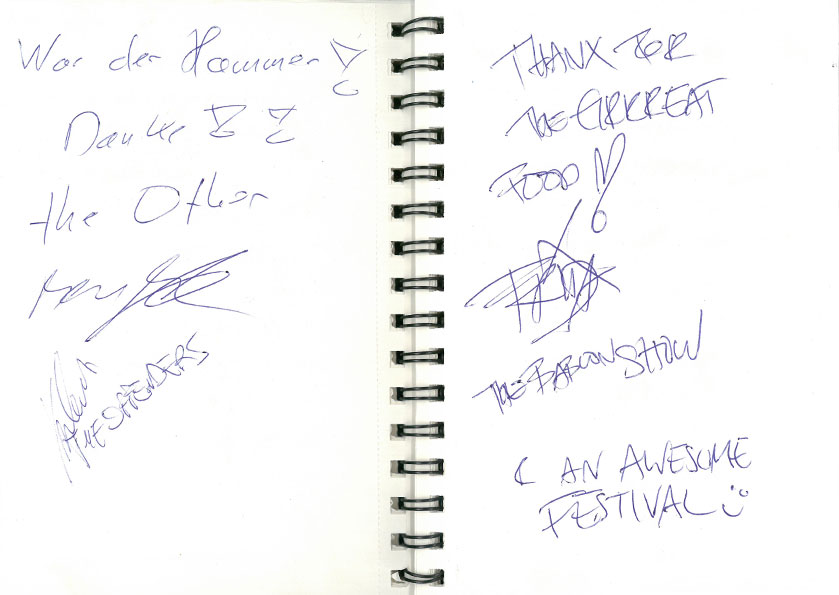 War der Hammer!
Danke!!
the Other
THE OFFENDERS
THANX FOR
THE GRRREAT
FOOD!
THE BABOON SHOW
& AN AWESOME
FESTIVAL :)